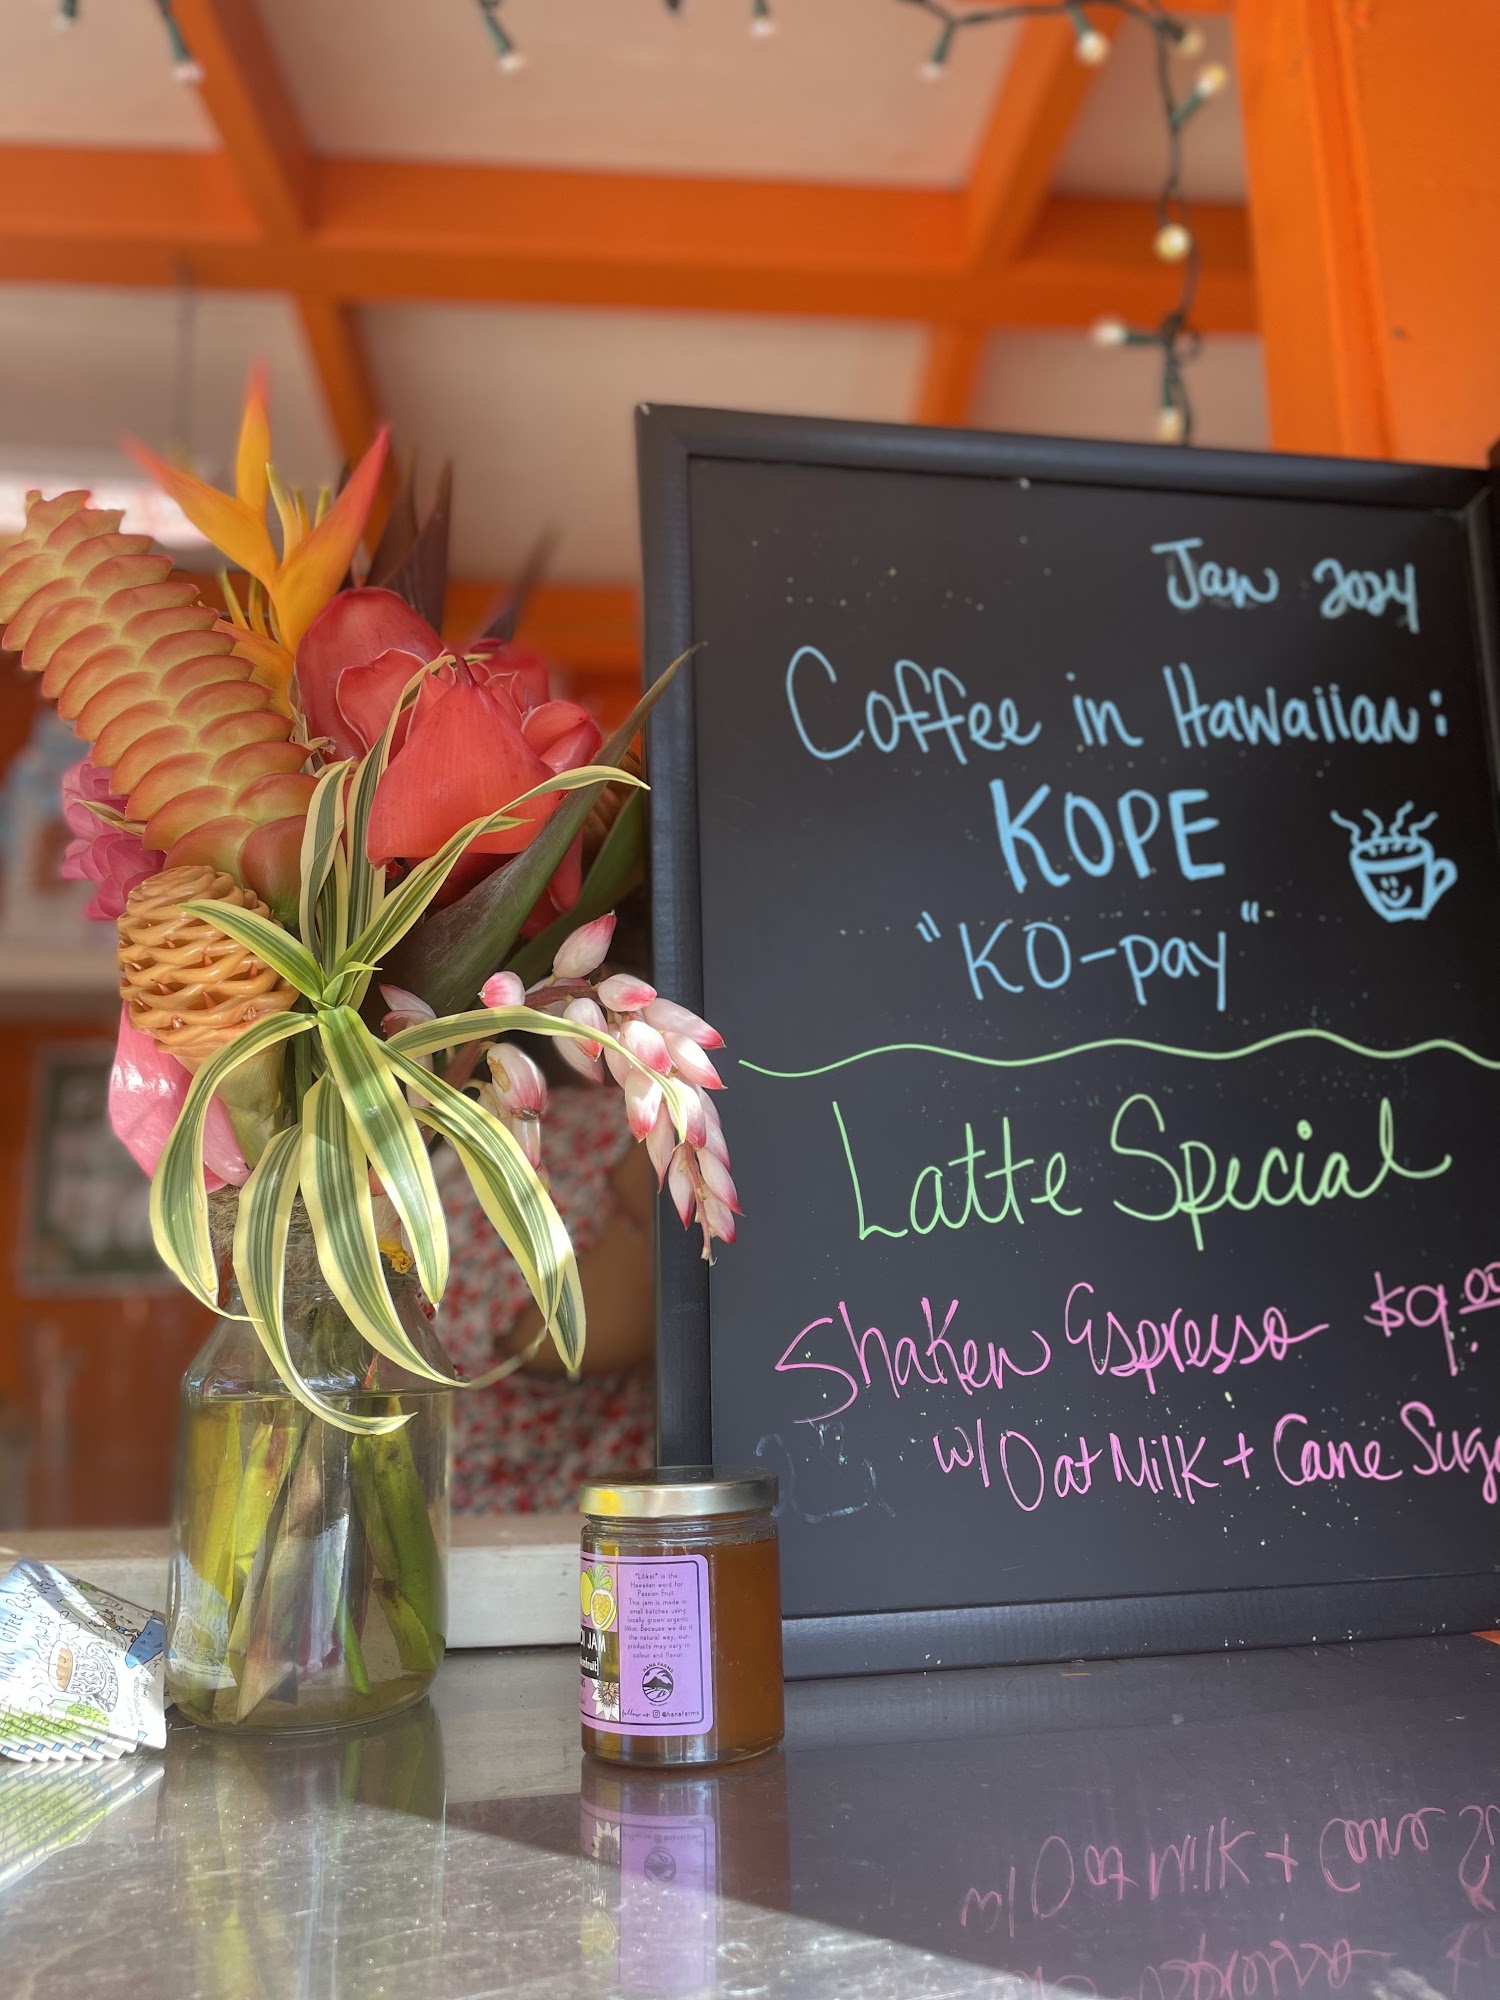 Jan 2024
Coffee in Hawaiian:
KOPE
"KO-pay"
Latte Special
Shaken Espresso $9.00
w/ Oat Milk + Cane Suga
"Lilikoi" is the
Hawaiian word for
Passion Fruit.
This jam is made in
small batches using
locally grown organic
lilikoi. Because we do it
the natural way, our
products may vary in
colour and flavor.
HANA FARMS
follow us: @hanafarms
JAM